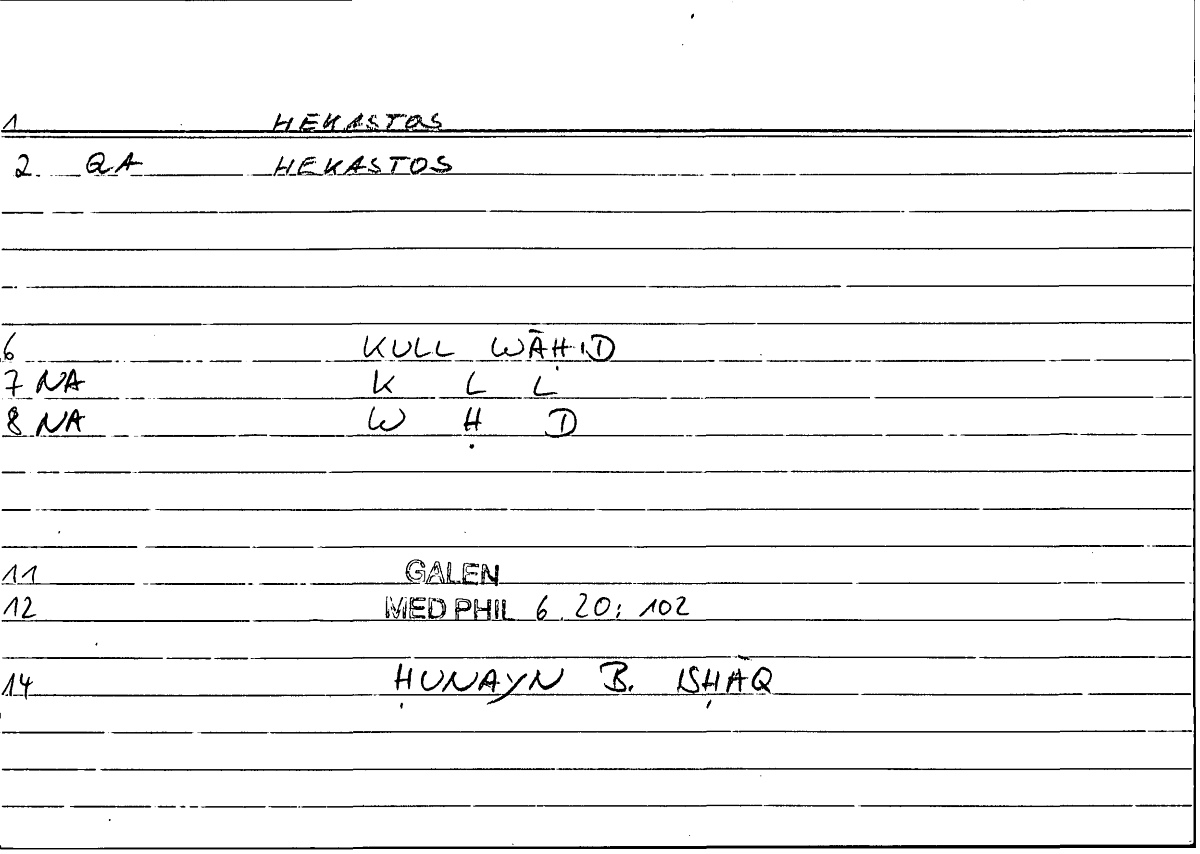 1 HEKASTOS
2. QA HEKASTOS
6 KULL WĀḤID
7 NA K L L
8 NA W Ḥ D
11 GALEN
12 MED PHIL 6.20; 102
14 ḤUNAYN B. ISḤĀQ